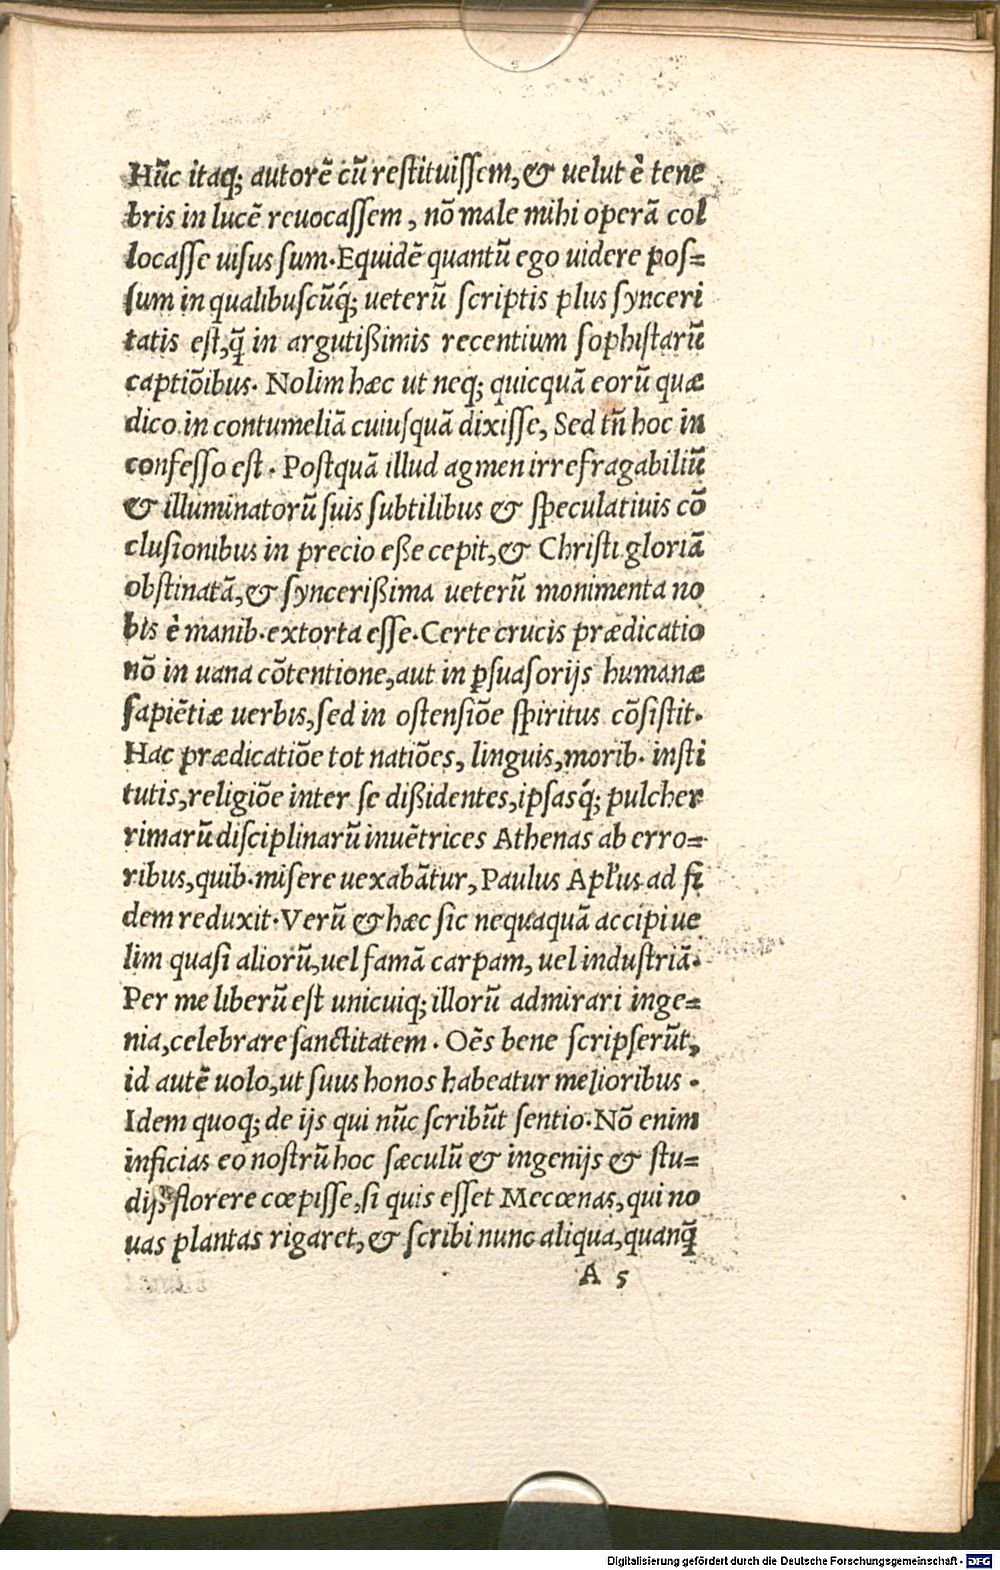 Hũc itaq; autorẽ cũ restituissem, & velut è tene
bris in lucẽ reuocassem, nõ male mihi operã col
locasse uisus sum. Equidẽ quantũ ego videre pos=
sum in qualibuscũq́; ueterũ scriptis plus synceri
tatis est, q̃ in argutißimis recentium sophistarũ
captiõibus. Nolim hæc ut neq; quicquã eorũ quæ
dico in contumeliã cuiusquã dixisse, Sed tñ hoc in
confesso est. Postquã illud agmen irrefragabiliũ
& illuminatorũ suis subtilibus & speculatiuis cõ
clusionibus in precio eße cepit, & Christi gloriã
obstinatã, & syncerißima ueterũ monimenta no
bis è manib. extorta esse. Certe crucis prædicatio
nõ in uana cõtentione, aut in ꝑsuasorijs humanæ
sapiẽtiæ uerbis, sed in ostensiõe spiritus cõsistit.
Hac prædicatiõe tot natiões, linguis, morib. insti
tutis, religiõe inter se dißidentes, ipsasq́; pulcher
rimarũ disciplinarũ inuẽtrices Athenas ab erro=
ribus, quib. misere uexabãtur, Paulus Apl'us ad fi
dem reduxit. Verũ & hæc sic nequaquã accipi ue
lim quasi aliorũ, uel famã carpam, uel industriã.
Per me liberũ est unicuiq; illorũ admirari inge=
nia, celebrare sanctitatem. Oẽs bene scripserũt,
id autẽ uolo, ut suus honos habeatur melioribus.
Idem quoq; de ijs qui nũc scribũt sentio. Nõ enim
inficias eo nostrũ hoc sæculũ & ingenijs & stu=
dijs florere cœpisse, si quis esset Mecœnas, qui no
uas plantas rigaret, & scribi nunc aliqua, quanq̃
A 5
Digitalisierung gefördert durch die Deutsche Forschungsgemeinschaft - DFG